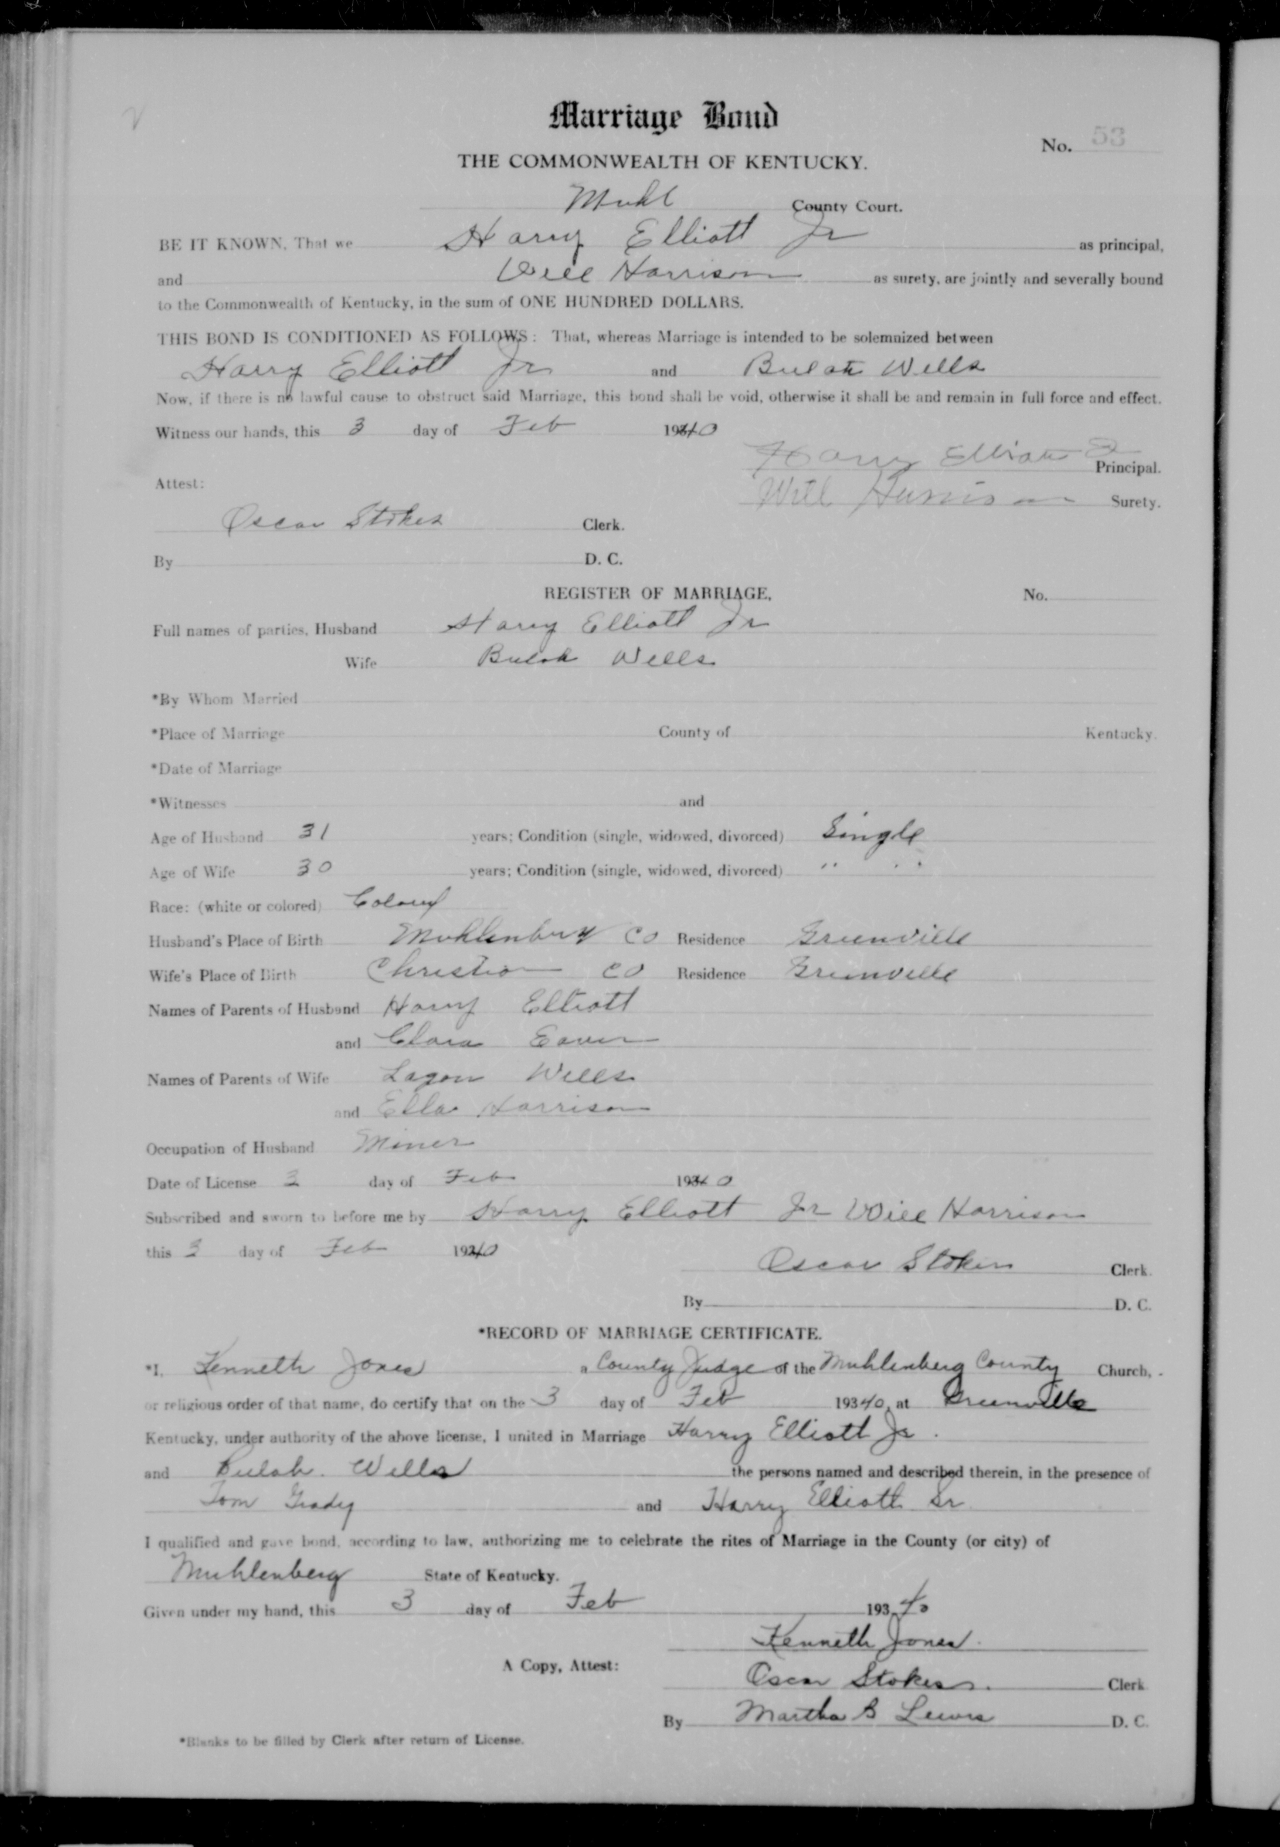 Marriage Bond
No. 53
THE COMMONWEALTH OF KENTUCKY.
Muhl County Court.
BE IT KNOWN, That we Harry Elliott Jr as principal,
and Will Harrison as surety, are jointly and severally bound
to the Commonwealth of Kentucky, in the sum of ONE HUNDRED DOLLARS.
THIS BOND IS CONDITIONED AS FOLLOWS: That, whereas Marriage is intended to be solemnized between
Harry Elliott Jr and Bulah Wells
Now, if there is no lawful cause to obstruct said Marriage, this bond shall be void, otherwise it shall be and remain in full force and effect.
Witness our hands, this 3 day of Feb 1940
Harry Elliott Jr Principal.
Attest:
Will Harrison Surety.
Oscar Stokes Clerk.
By D. C.
REGISTER OF MARRIAGE, No.
Full names of parties, Husband Harry Elliott Jr
Wife Bulah Wells
*By Whom Married
*Place of Marriage County of Kentucky.
*Date of Marriage
*Witnesses and
Age of Husband 31 years; Condition (single, widowed, divorced) Single
Age of Wife 30 years; Condition (single, widowed, divorced) " "
Race: (white or colored) Colored
Husband's Place of Birth Muhlenburg CO Residence Greenville
Wife's Place of Birth Christian CO Residence Greenville
Names of Parents of Husband Harry Elliott
and Clara Eaves
Names of Parents of Wife Logan Wells
and Ella Harrison
Occupation of Husband Miner
Date of License 3 day of Feb 1940
Subscribed and sworn to before me by Harry Elliott Jr Will Harrison
this 3 day of Feb 1940
Oscar Stokes Clerk.
By D. C.
*RECORD OF MARRIAGE CERTIFICATE.
*I, Kenneth Jones a County Judge of the Muhlenberg County Church,
or religious order of that name, do certify that on the 3 day of Feb 19340, at Greenville
Kentucky, under authority of the above license, I united in Marriage Harry Elliott Jr.
and Bulah. Wells the persons named and described therein, in the presence of
Tom Grady and Harry Elliott Sr
I qualified and gave bond, according to law, authorizing me to celebrate the rites of Marriage in the County (or city) of
Muhlenberg State of Kentucky.
Given under my hand, this 3 day of Feb 19340
Kenneth Jones.
A Copy, Attest:
Oscar Stokes. Clerk
By Martha B Lewis D. C.
*Blanks to be filled by Clerk after return of License.